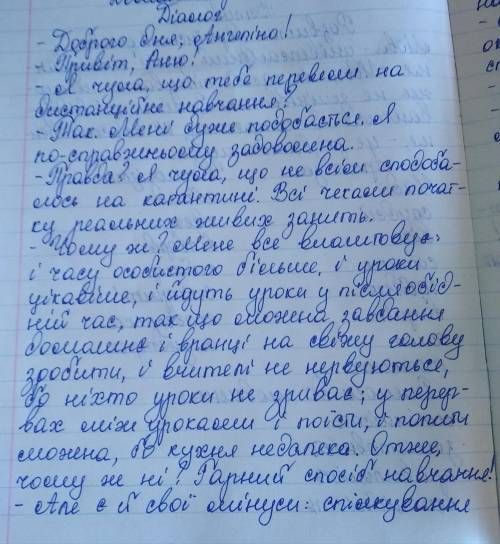 Діалог
- Доброго дня, Ангеліно!
- Привіт, Аню!
- Я чула, що тебе перевели на
дистанційне навчання?
- Так. Мені дуже подобається. Я
по-справжньому задоволена.
- Правда? Я чула, що не всім сподоба-
лось на карантині. Всі чекали почат-
ку реальних живих занять.
- Чому ж? Мене все влаштовує:
і часу особистого більше, і уроки
цікавіше, і йдуть уроки у післяобід-
ній час, так що можна завдання
домашнє і вранці на свіжу голову
зробити, і вчителі не нервуються,
бо ніхто уроки не зриває; у перер-
вах між уроками і поїсти, і попити
можна, бо кухня недалека. Отже,
чому ж ні? Гарний спосіб навчання!
- Але є й свої мінуси: спілкування